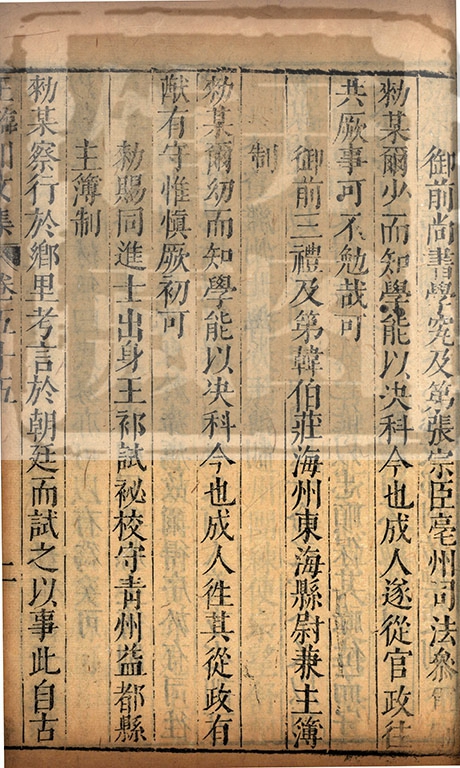 御前尚書學究及第張宗臣亳州司法參
勑某爾少而知學能以决科今也成人遂從官政往
共厥事可不勉哉可
御前三禮及第韓伯莊海州東海縣尉兼主簿
制
勑某爾幼而知學能以决科今也成人徃其從政有
猷有守惟慎厥初可
勑賜同進士出身王祁試祕校守青州益都縣
主簿制
勑某察行於鄉里考言於朝廷而試之以事此自古
王臨川文集 卷五十五